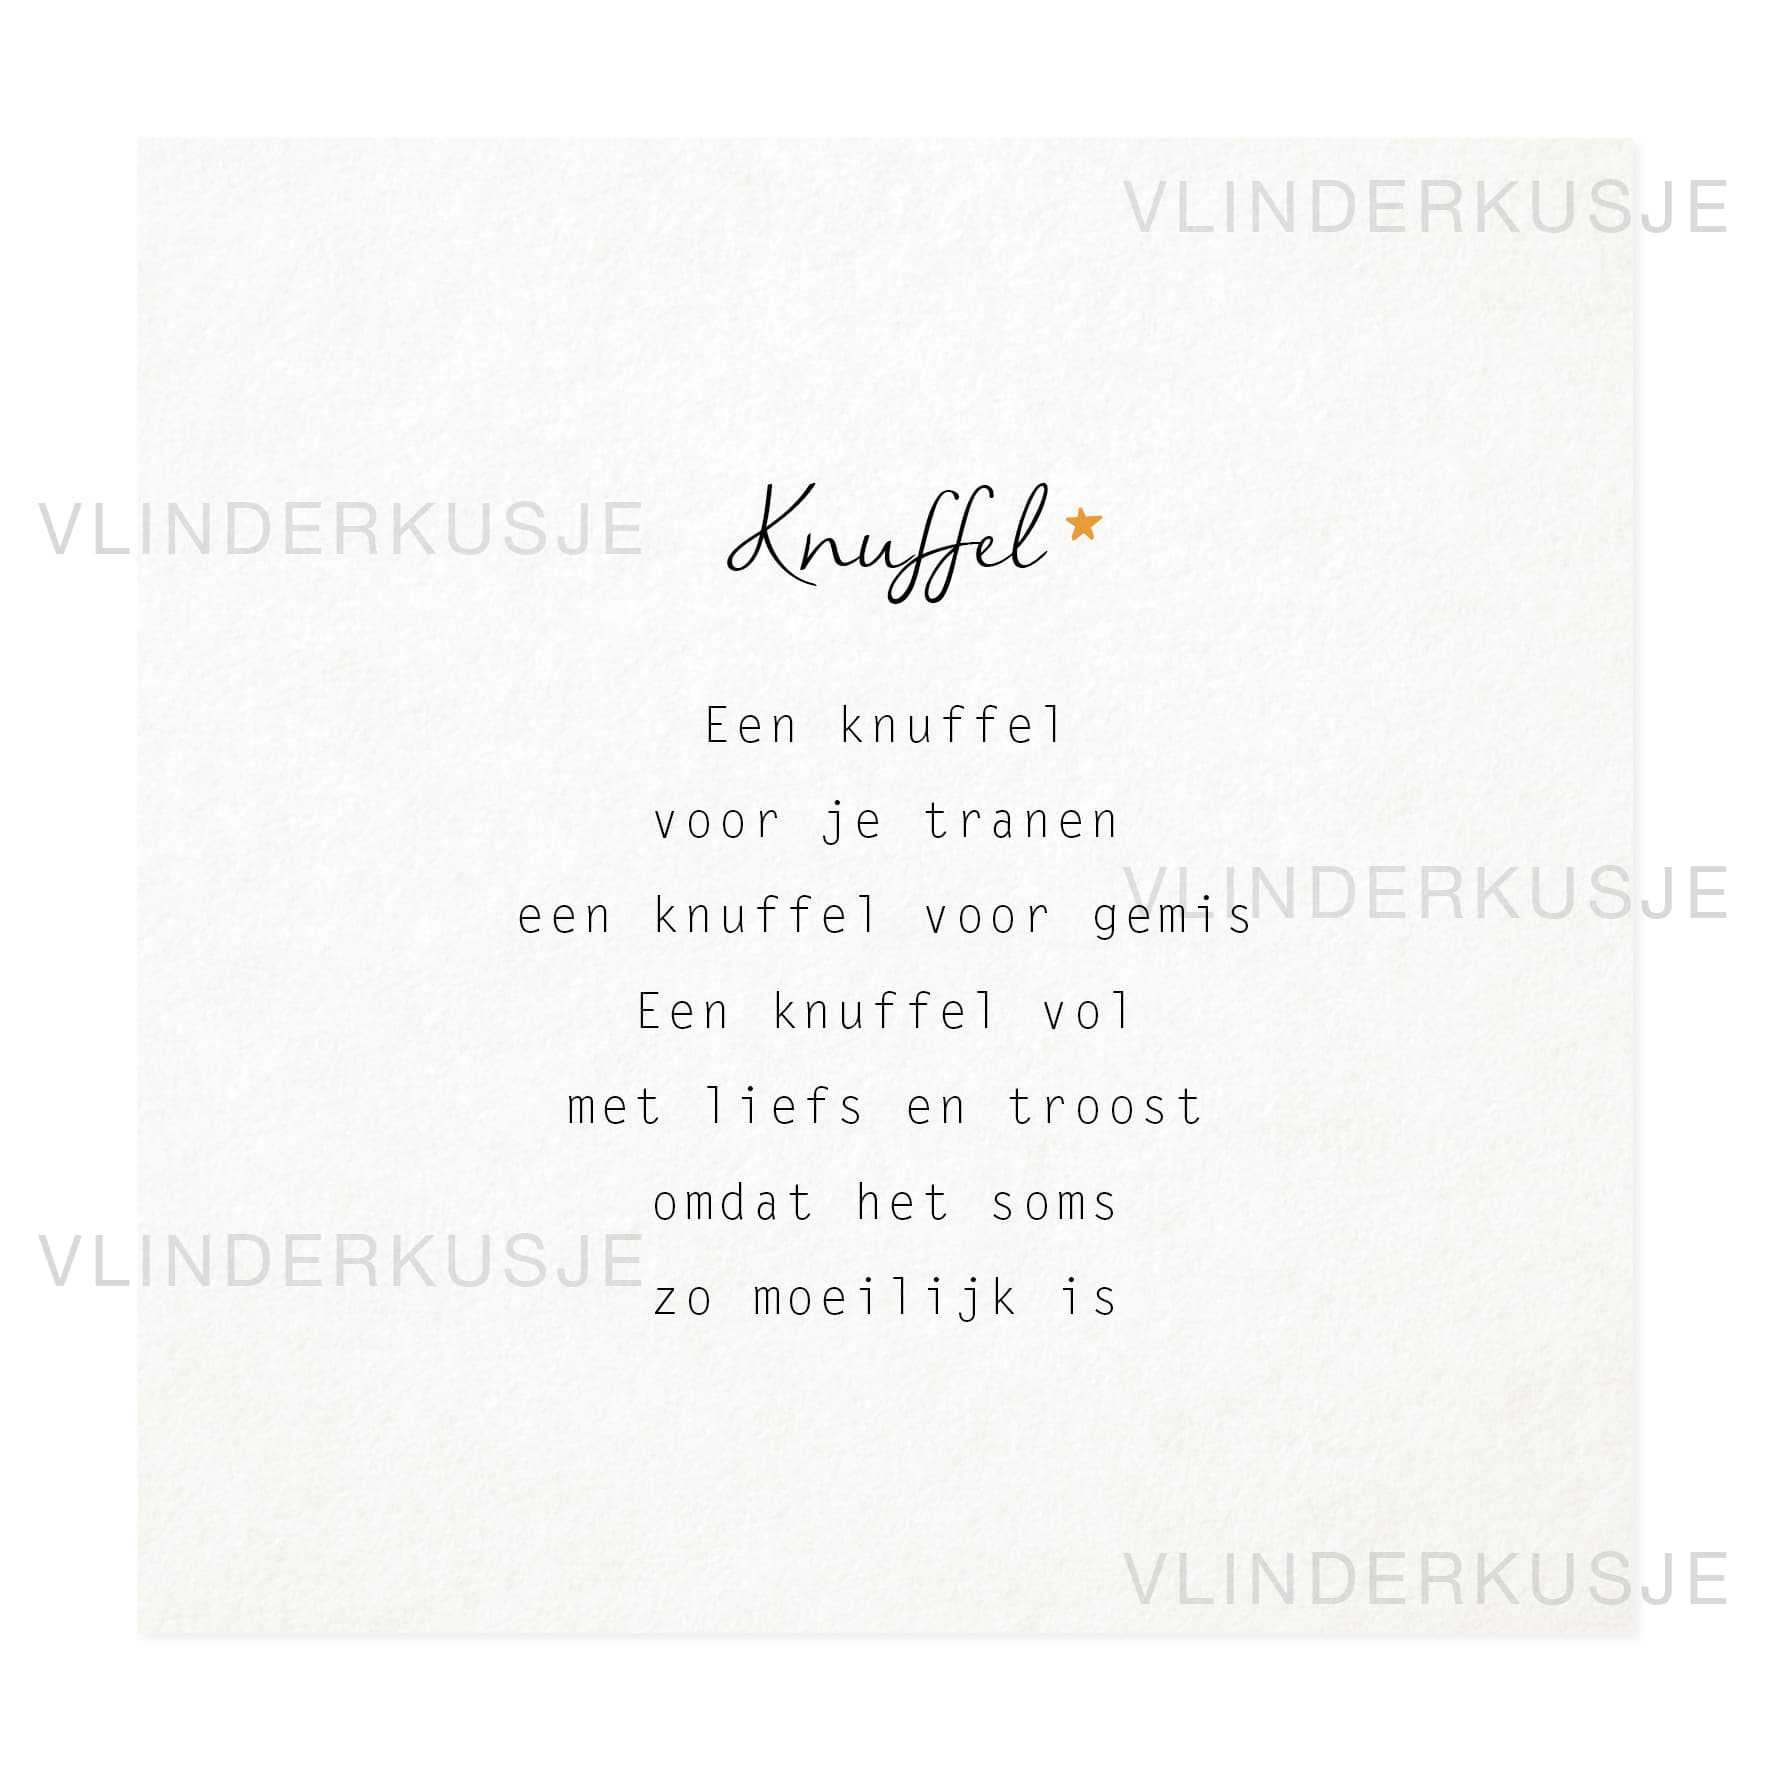 VLINDERKUSJE
Knuffel
VLINDERKUSJE
Een knuffel
voor je tranen
een knuffel voor gemis
VLINDERKUSJE
Een knuffel vol
met liefs en troost
omdat het soms
VLINDERKUSJE
zo moeilijk is
VLINDERKUSJE